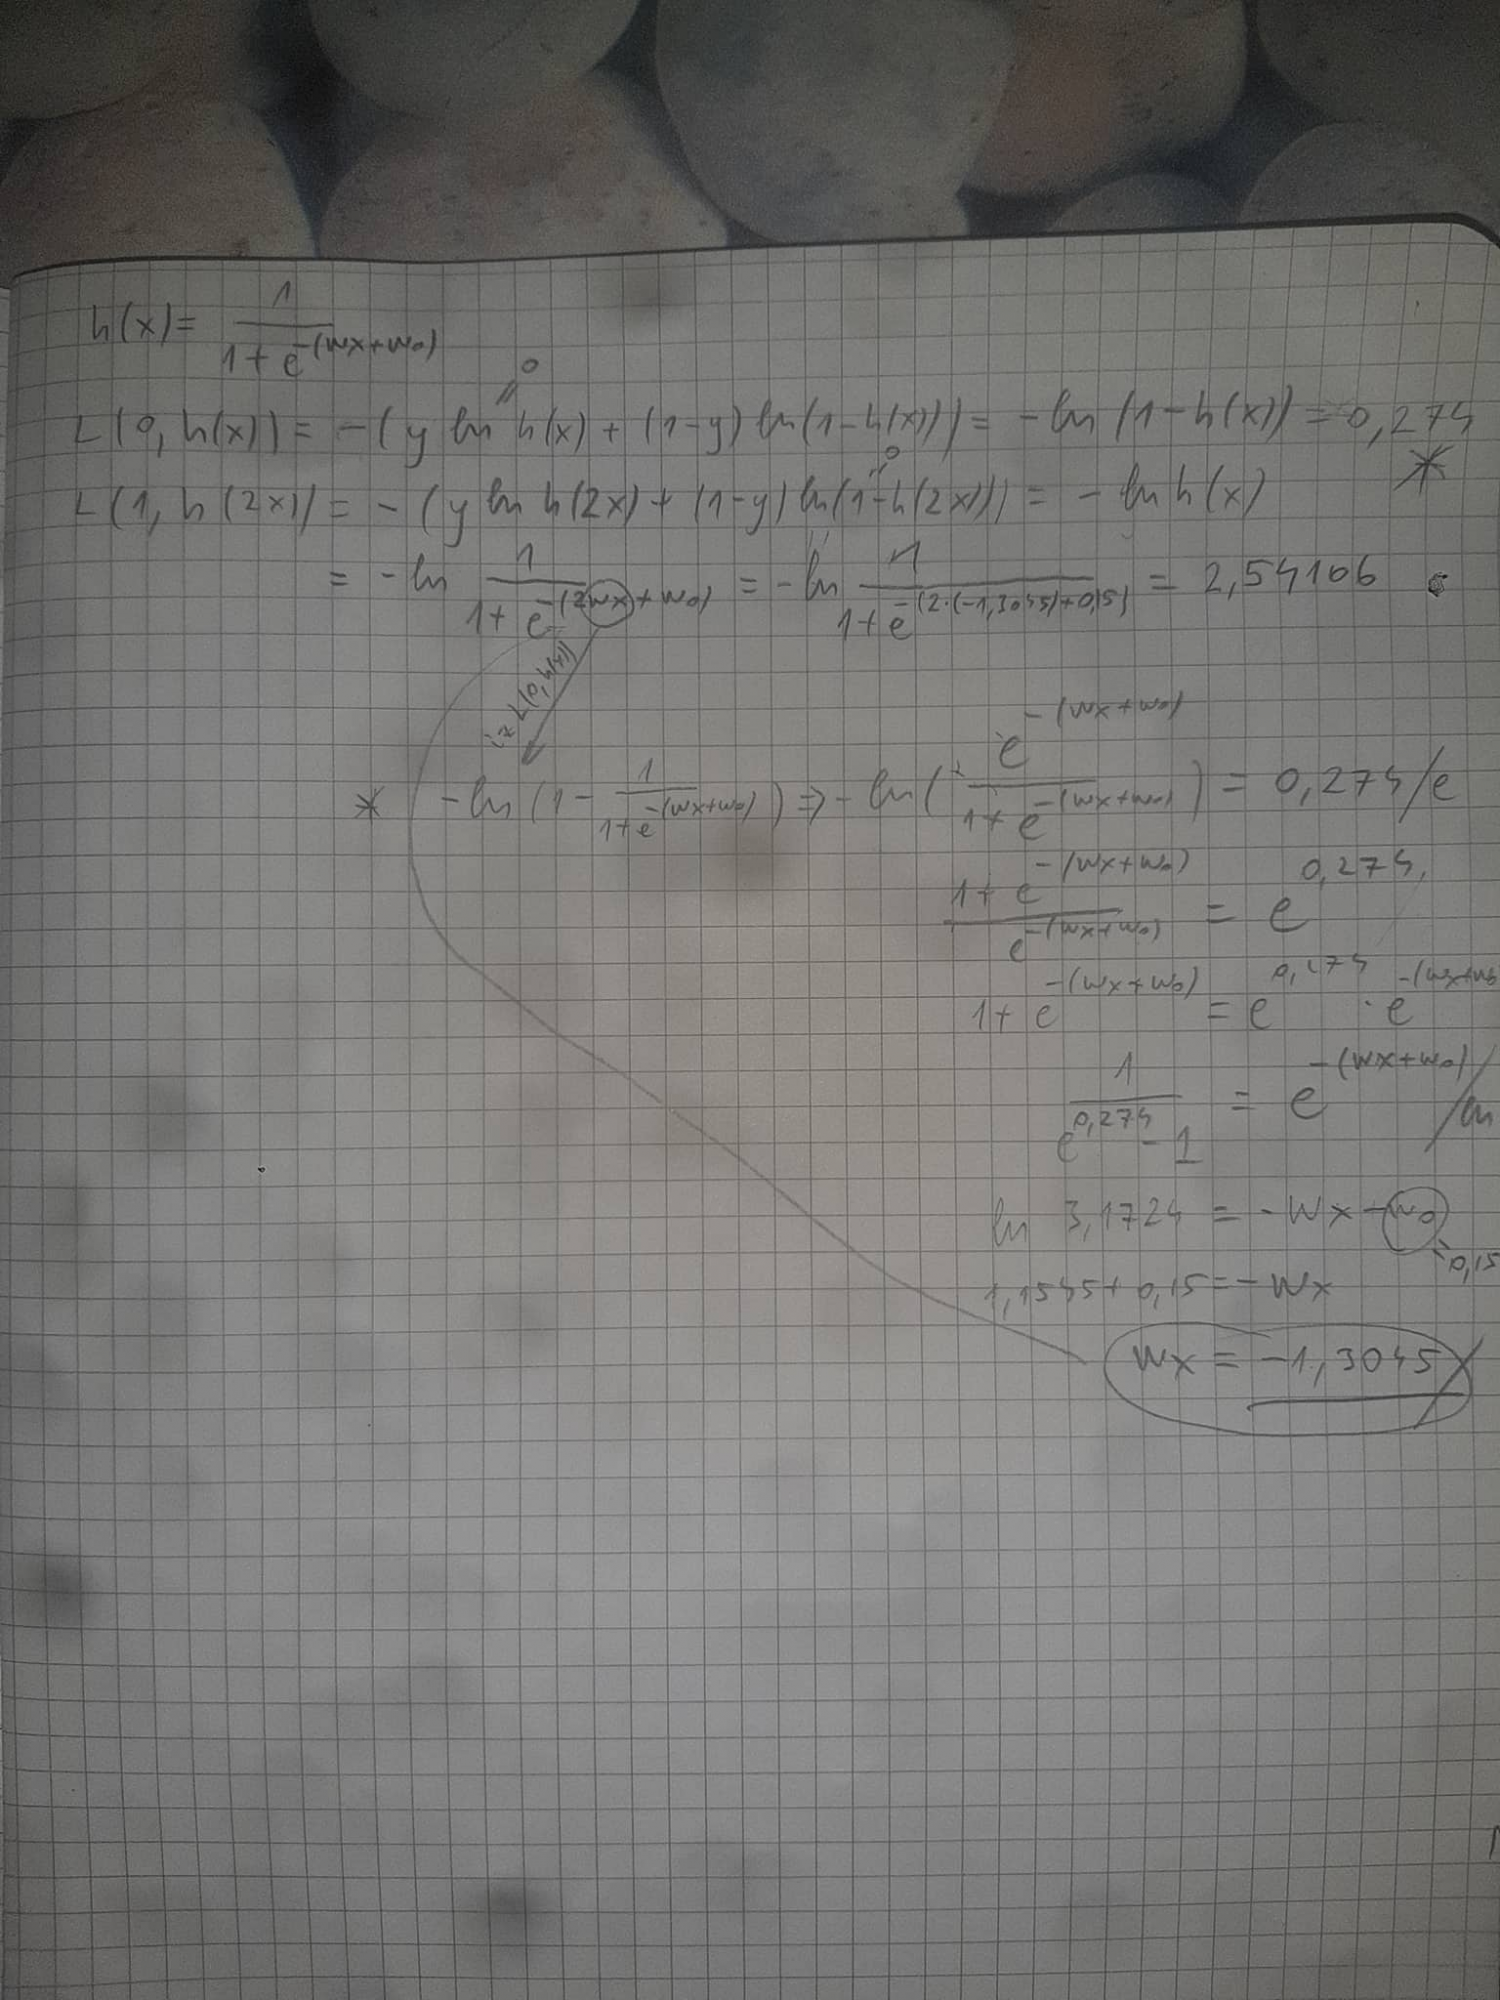 h(x) = 1 / (1 + e^-(wx+w0))
L(0, h(x)) = -(y ln h(x) + (1-y) ln(1-h(x))) = -ln(1-h(x)) = 0,274 *
L(1, h(2x) = -(y ln h(2x) + (1-y) ln(1-h(2x))) = -ln h(x)
= -ln 1 / (1 + e^-(2wx+w0)) = -ln 1 / (1 + e^-(2·(-1,3045)+0,15)) = 2,54106
iz L(0, h(x))
* -ln(1 - 1 / (1+e^-(wx+w0))) => -ln(e^-(wx+w0) / (1+e^-(wx+w0))) = 0,274 /e
(1+e^-(wx+w0)) / e^-(wx+w0) = e^0,274
1+e^-(wx+w0) = e^0,274 · e^-(wx+w0
1 / (e^0,274 - 1) = e^-(wx+w0) /ln
ln 3,1724 = -wx-w0
=0,15
1,1545+0,15=-wx
wx = -1,3045